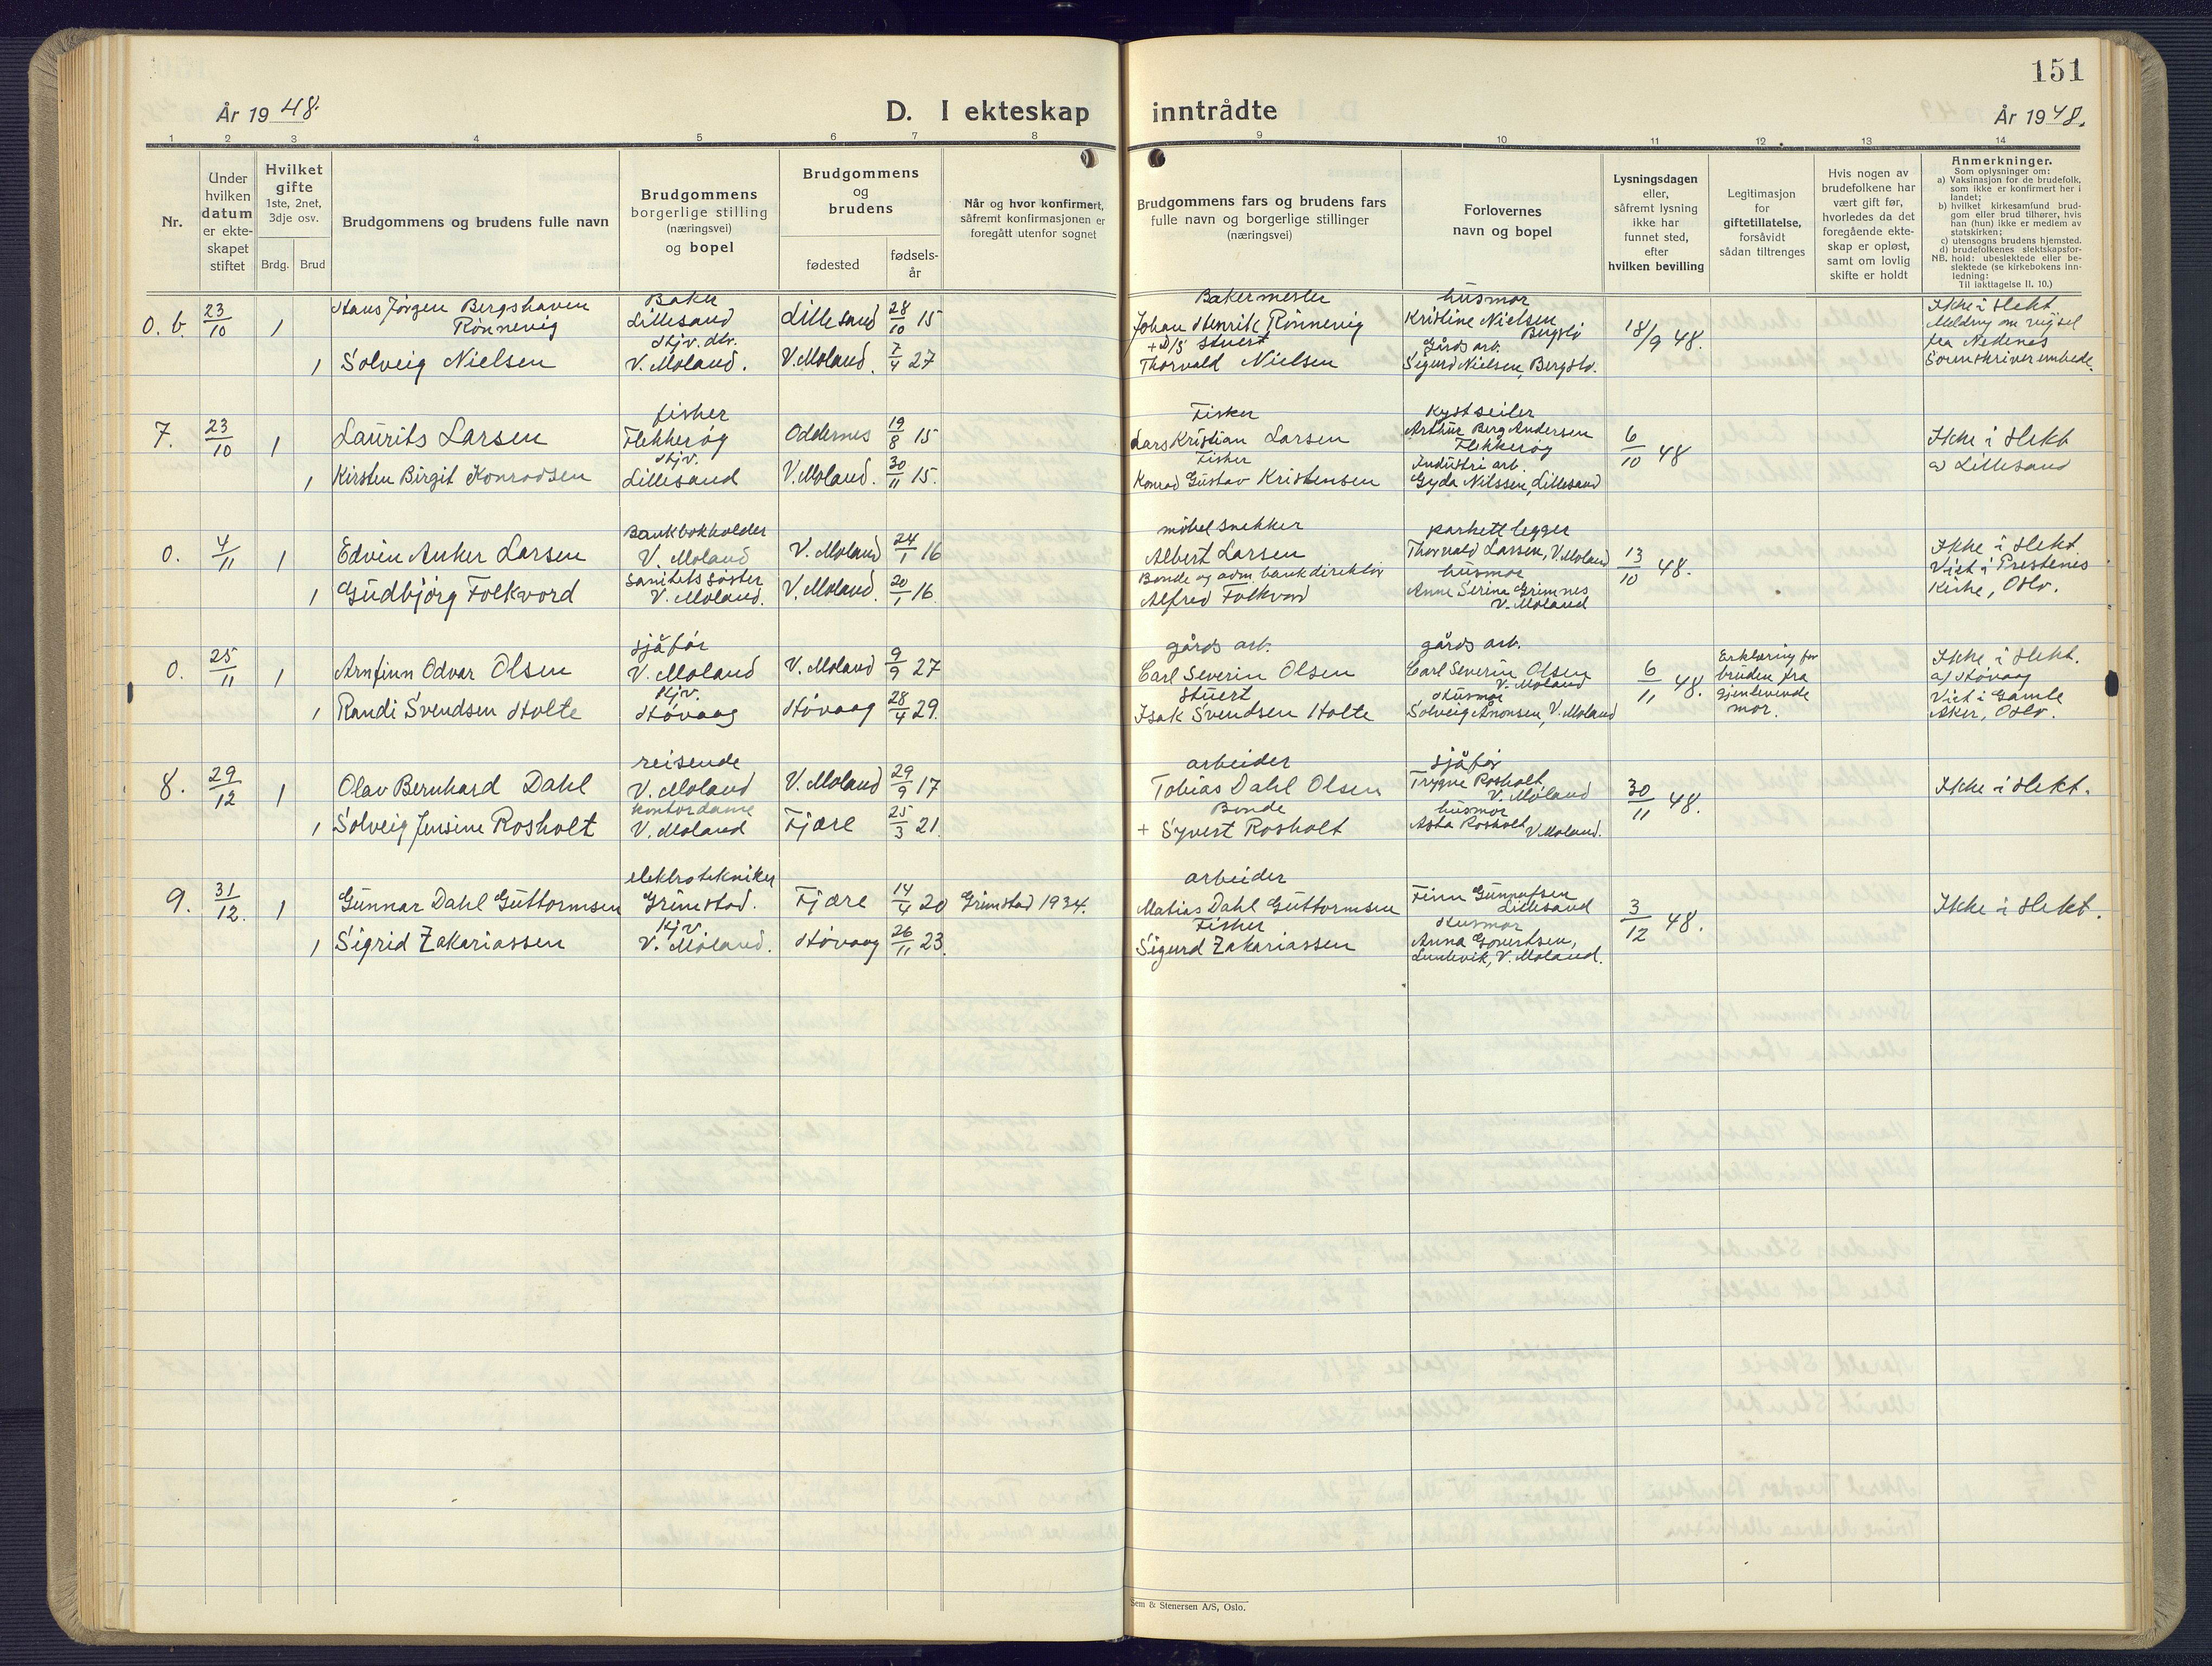 151
År 1948.
D. I ekteskap inntrådte
År 1948.
1 2 3 4 5 6 7 8 9 10 11 12 13 14
Nr.
Under hvilken datum er ekte-skapet stiftet
Hvilket gifte 1ste, 2net, 3dje osv.
Brdg. Brud
Brudgommens og brudens fulle navn
Brudgommens borgerlige stilling (næringsvei) og bopel
Brudgommens og brudens
fødested
fødsels-år
Når og hvor konfirmert, såfremt konfirmasjonen er foregått utenfor sognet
Brudgommens fars og brudens fars fulle navn og borgerlige stillinger (næringsvei)
Forlovernes navn og bopel
Lysningsdagen eller, såfremt lysning ikke har funnet sted, efter hvilken bevilling
Legitimasjon for giftetillatelse, forsåvidt sådan tiltrenges
Hvis nogen av brudefolkene har vært gift før, hvorledes da det foregående ekte-skap er opløst, samt om lovlig skifte er holdt
Anmerkninger.
Som oplysninger om:
a) Vaksinasjon for de brudefolk, som ikke er konfirmert her i landet;
b) hvilket kirkesamfund brud-gom eller brud tilhører, hvis han (hun) ikke er medlem av statskirken;
c) utensogns brudens hjemsted.
d) brudefolkenes slektskapsfor-hold: ubeslektede eller be-slektede (se kirkebokens inn-ledning:
NB. Til iakttagelse II. 10.)
Baker Bakermester husmor Ikke i slekt
0. b 23/10 1 Hans Jørgen Bergshaven Rønnevig Lillesand Lillesand 28/10 15 Johan Henrik Rønnevig Kristine Nielsen Bergstø 18/9 48. Meldng om vigsel
Hjv. dtr. + D/S Stuert Gårds arb. fra Nedenes
1 Solveig Nielsen V. Moland. V. Moland 7/4 27 Thorvald Nielsen Sigurd Nielsen, Bergstø. Sorenskriverembede.
fisker Fisker Kystseiler
7. 23/10 1 Laurits Larsen Flekkerøy Oddernes 19/8 15 Lars Kristian Larsen Arthur Berg Andersen Flekkerøy 6/10 48 Ikke i slekt
Hjv. Fisker Industri arb.
1 Kirsten Birgit Konradsen Lillesand V. Moland. 30/11 15. Konrad Gustav Kristensen Gyda Nilssen, Lillesand a) Lillesand
Bankbokholder møbelsnekker parkettlegger
0. 4/11 1 Edvin Anker Larsen V. Moland V. Moland 24/1 16 Albert Larsen Thorvald Larsen, V. Moland 13/10 48. Ikke i slekt.
Sanitetssøster Bonde og adm. bankdirektør husmor Viet i Prestenes
1 Gudbjørg Folkvord V. Moland. V. Moland. 20/1 16. Alfred Folkvord Anne Serina Grimnes V. Moland Kirke, Oslo.
sjåfør gårds arb. gårds arb.
0. 25/11 1 Arnfinn Odvar Olsen V. Moland V. Moland 9/9 27 Carl Severin Olsen Carl Severin Olsen V. Moland 6/11 48. Erklæring for bruden fra gjenlevende mor. Ikke i slekt.
Hjv. Stuert Husmor a) Høvaag
1 Randi Svendsen Holte Høvaag Høvaag 28/4 29. Isak Svendsen Holte Solveig Aanonsen, V. Moland Viet i Gamle Aker, Oslo.
reisende arbeider sjåfør
8. 29/12 1 Olav Bernhard Dahl V. Moland V. Moland 29/9 17 Tobias Dahl Olsen Trygve Rosholt V. Moland 30/11 48. Ikke i slekt.
kontordame Bonde husmor
1 Solveig Jensine Rosholt V. Moland Fjære 25/3 21. + Syvert Rosholt Asta Rosholt V. Moland.
elektrotekniker arbeider
9. 31/12. 1 Gunnar Dahl Guttormsen Grimstad. Fjære 14/4 20 Grimstad 1934. Matias Dahl Guttormsen Finn Gunnufsen Lillesand 3/12 48. Ikke i slekt.
Hjv. Fisker Husmor
1 Sigrid Zakariassen V. Moland. Høvaag 26/11 23. Sigurd Zakariassen Anna Govertsen, V. Moland.
Sem & Stenersen A/S, Oslo.